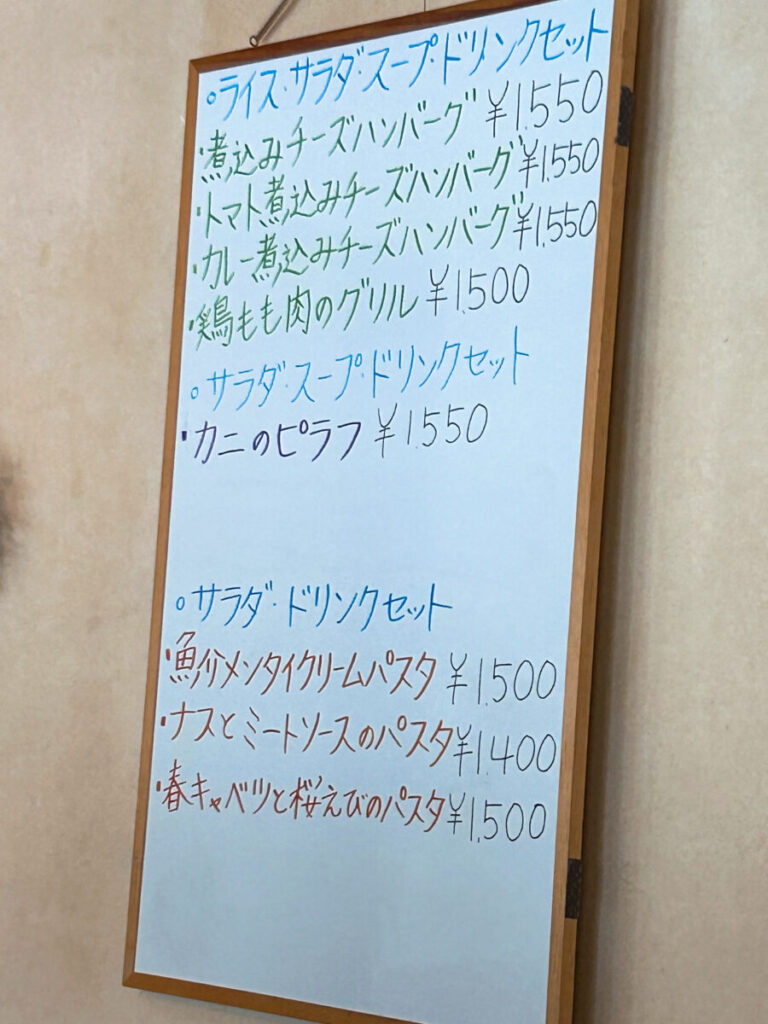 ○ライス・サラダ・スープ・ドリンクセット
・煮込みチーズハンバーグ ¥1,550
・トマト煮込みチーズハンバーグ ¥1,550
・カレー煮込みチーズハンバーグ ¥1,550
・鶏もも肉のグリル ¥1,500
○サラダ・スープ・ドリンクセット
・カニのピラフ ¥1,550
○サラダ・ドリンクセット
・魚介メンタイクリームパスタ ¥1,500
・ナスとミートソースのパスタ ¥1,400
・春キャベツと桜えびのパスタ ¥1,500